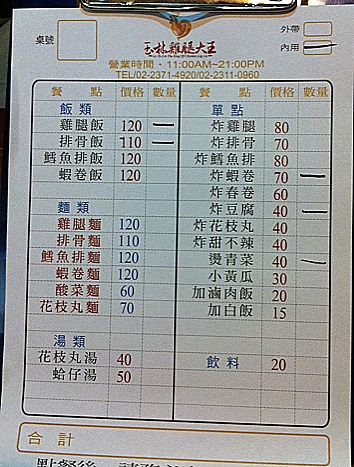 桌號
玉林雞腿大王
外帶
內用
營業時間·11:00AM~21:00PM
TEL/02-2371-4920/02-2311-0960
餐 點 價格 數量
飯 類
雞腿飯 120
排骨飯 110
鱈魚排飯 120
蝦卷飯 120
麵 類
雞腿麵 120
排骨麵 110
鱈魚排麵 120
蝦卷麵 120
酸菜麵 60
花枝丸麵 70
湯 類
花枝丸湯 40
蛤仔湯 50
餐 點 價格 數量
單 點
炸雞腿 80
炸排骨 70
炸鱈魚排 80
炸蝦卷 70
炸春卷 60
炸豆腐 40
炸花枝丸 40
炸甜不辣 40
燙青菜 40
小黃瓜 30
加滷肉飯 20
加白飯 15
飲料 20
合 計